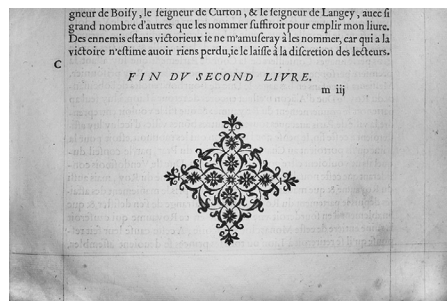 gneur de Boisy, le seigneur de Curton, & le seigneur de Langey, auec si
grand nombre d'autres que les nommer suffiroit pour emplir mon liure.
Des ennemis estans victorieux ie ne m'amuseray à les nommer, car qui a la
victoire n'estime auoir riens perdu, ie le laisse à la discretion des lecteurs.
C
FIN DV SECOND LIVRE.
m iij